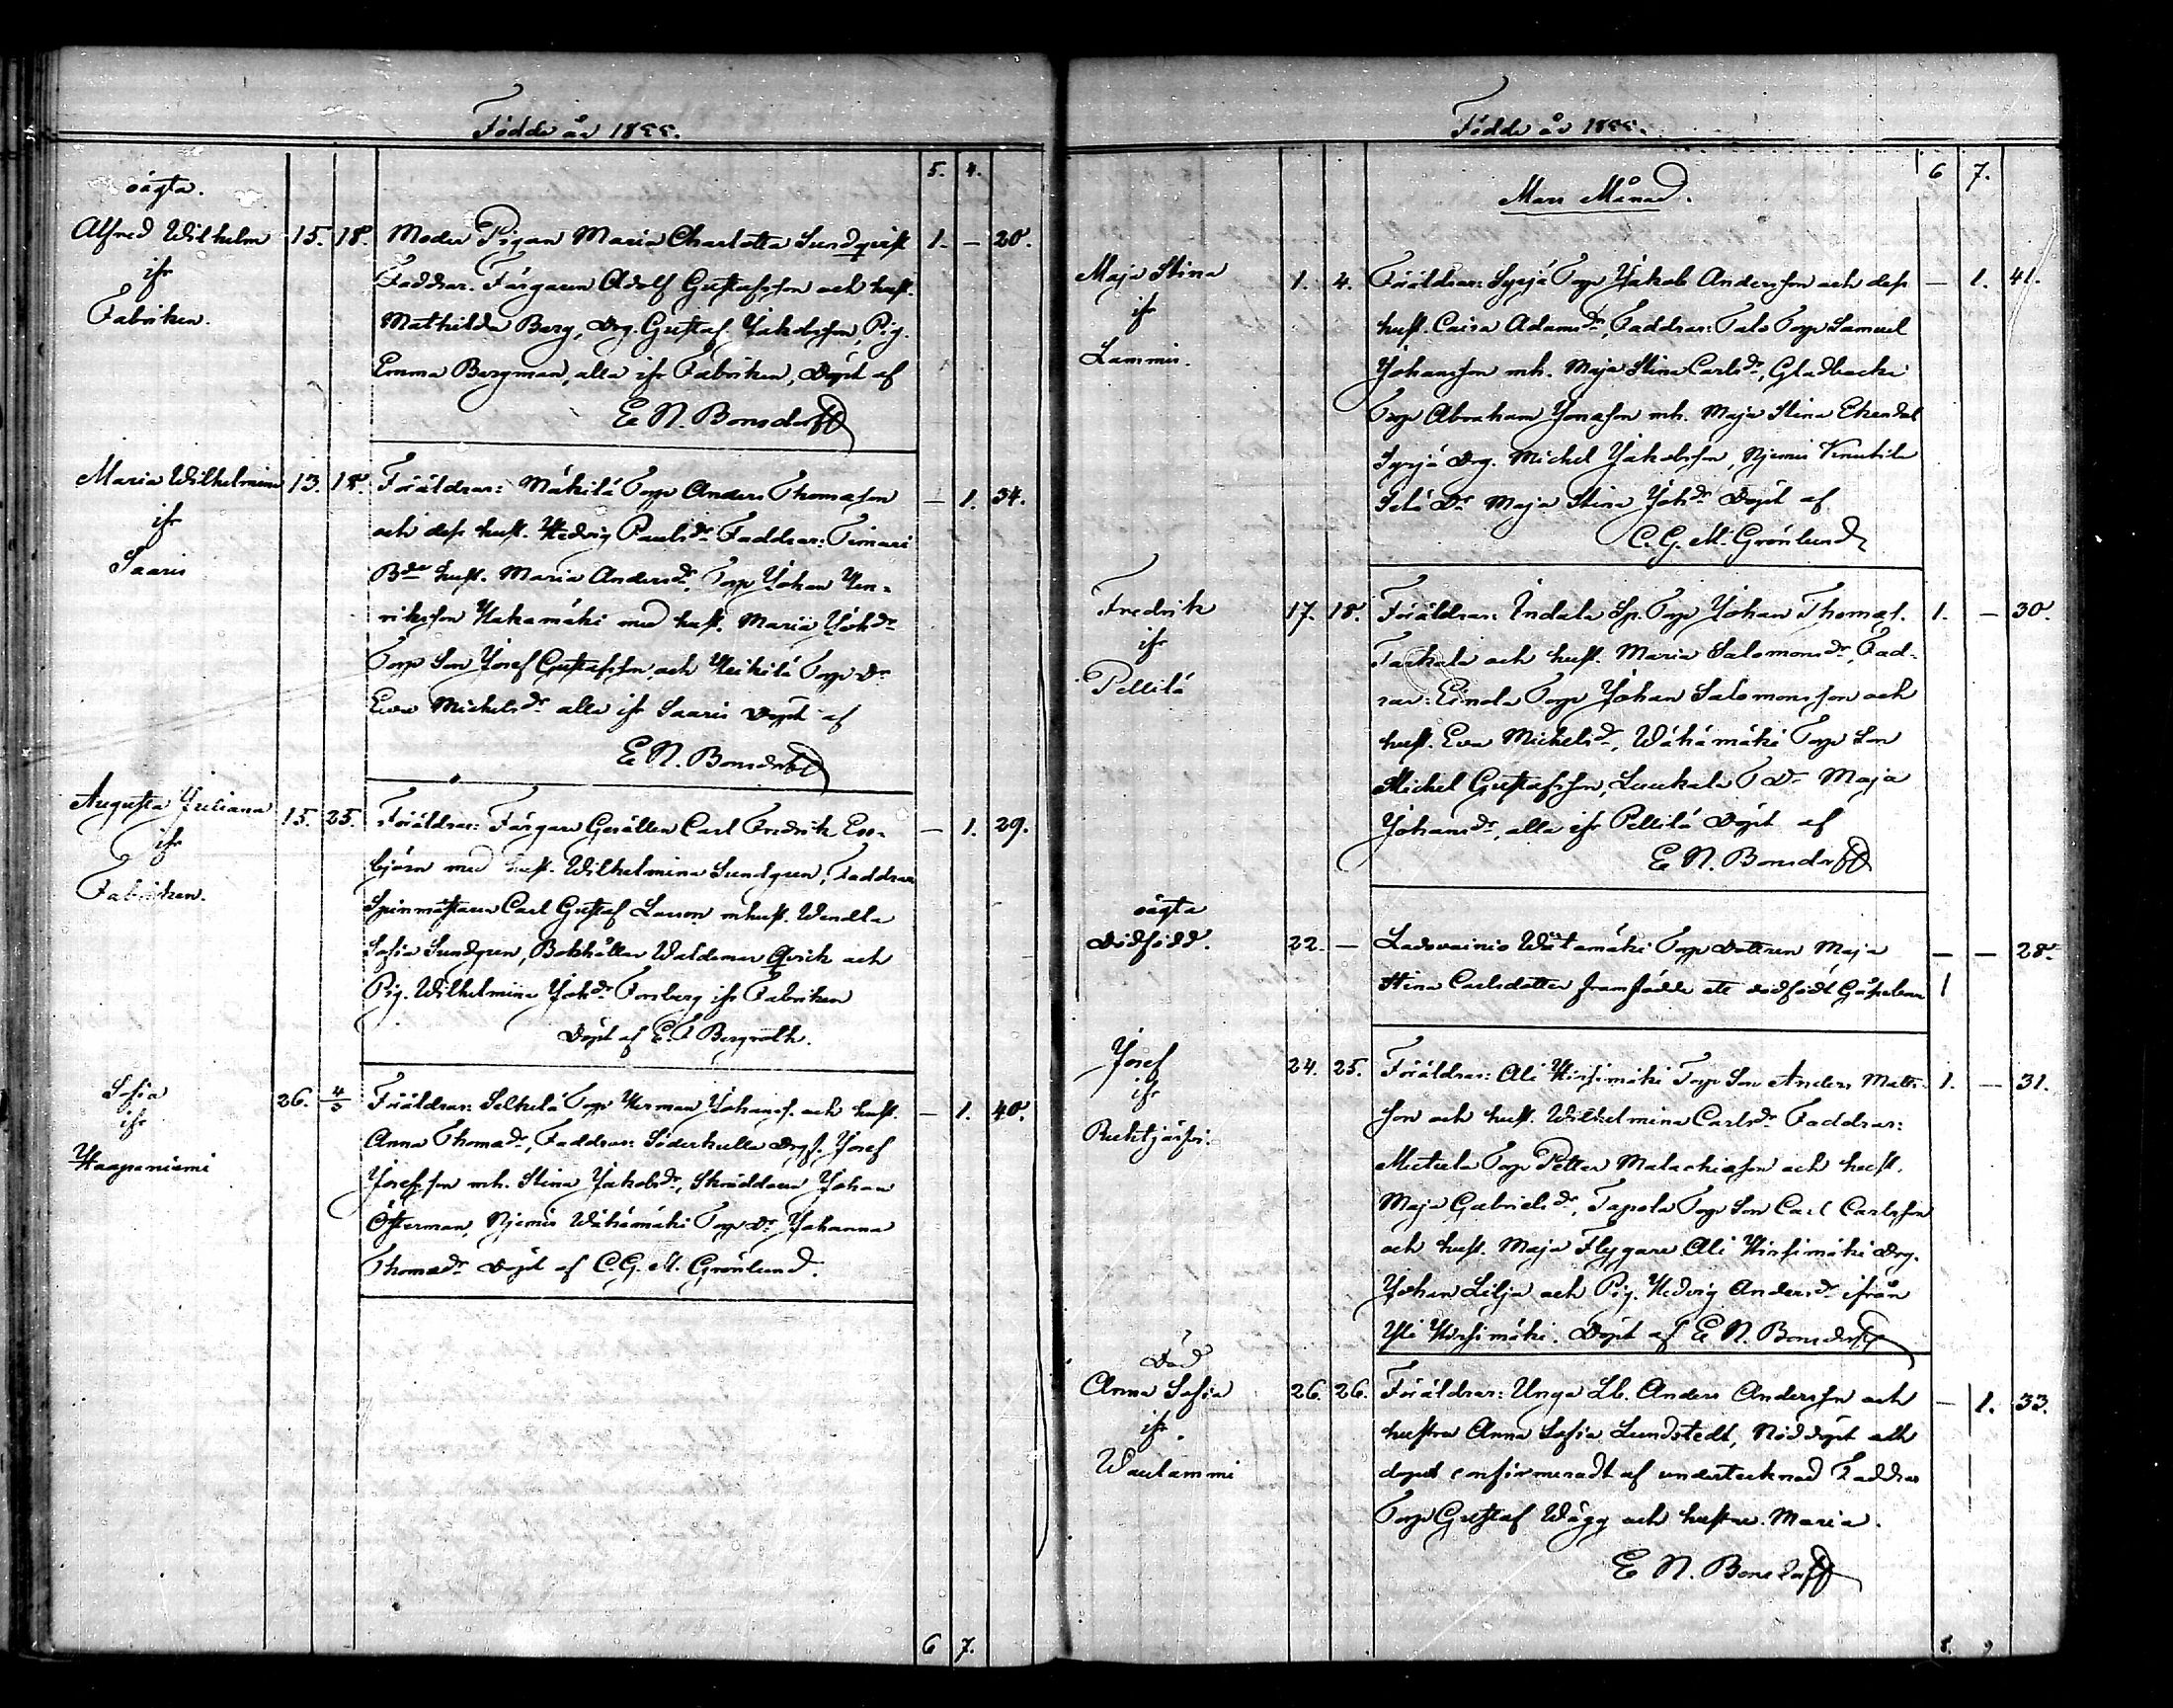 Födde år 1855.
5. 4.
oägta.
Alfred Wilhelm 15. 18. Moder Pigan Maria Charlotta Sundqvist 1. — 20.
ifr Faddrar. Färgaren Adolf Gustafsson och hust.
Fabriken. Mathilda Berg, Drg. Gustaf Jakobsson, Pig.
Emma Bergman, alla ifr Fabriken, Döpt af
E N. Bonsdorff
Maria Wilhelmina 13. 18. Föräldrar: Mäkilä Torp Anders Thomasson — 1. 34.
ifr och dess hust. Hedvig Paulsdr Faddrar: Timari
Saaris Bdr hust. Maria Andersdr, Torp Johan Hen-
riksson Hakamäki med hust. Maria Johdr
Torp Son Josef Gustafsson och Heikilä Torp dr
Eva Michelsdr alla ifr Saaris Döpt af
E N. Bonsdorff
Augusta Juliana 15. 25. Föräldrar: Färgare Gesällen Carl Fredrik Es- — 1. 29.
ifr björn med hust. Wilhelmina Sundgren, Faddrar
Fabriken. Spinmästaren Carl Gustaf Larson mhust. Wendla
Sofia Sundgren, Bokhållar Waldemar Qvick och
Pig. Wilhelmina Johdr Forsberg ifr Fabriken
Döpt af E. F Bergroth.
Sofia 26. 4/3 Föräldrar: Selkelä Torp Herman Johanss. och hust. — 1. 40.
ifr Anna Thomadr, Faddrar: Söderkulla Drg. Josef
Haapaniemi Josefsson mh. Stina Jakobsdr, Skräddaren Johan
Österman, Njemis Wähämäki Torp dr Johanna
Thomadr Döpt af C. G. M. Grönlund.
6 7.
Födde år 1855.
6 7.
Mars Månad.
Maja Stina 1. 4. Föräldrar: Syrjä Torp Jakob Andersson och dess — 1. 41.
ifr hust. Caisa Adamsdr, Faddrar: Talo Torp Samuel
Lammis. Johansson mh. Maja Stina Carlsdr, Gladbacka
Torp Abraham Jonasson mh. Maja Stina Ekendal
Syrjä Drg. Michel Jakobsson, Njemis Knutila
Dr Maja Stina Johdr Döpt af
C. G. M. Grönlund
Fredrik 17. 18. Föräldrar: Indala Sp. Torp Johan Thomas. 1. — 30.
ifr och hust. Maria Salomonsdr, Fad-
Pellilä rar: Einola Torp Johan Salomonsson och
hust. Eva Michelsdr, Wähämäki Torp Son
Michel Gustafsson, Luukala T Dr Maja
Johansdr, alla ifr Pellilä Döpt af
E N. Bonsdorff
oägta
Dödfödd. 22. — Ladovainio Wätamäki Torp Dottren Maja — — 28.
Stina Carlsdotter framfödde ett dödfödt Gåssebarn 1
Josef 24. 25. Föräldrar: Ali Hirsimäki Torp Son Anders Matts- 1. — 31.
ifr son och hust. Wilhelmina Carlsdr Faddrar:
Ruhtjärfvi. Torp Petter Malachiasson och hust.
Maja Gabrielsdr, Tapola Torp Son Carl Carlsson
och hust. Maja Flygare Ali Hirsimäki Drg.
Johan Lilja och Pig. Hedvig Andersdr ifrån
Yli Hirsimäki. Döpt af E N. Bonsdorff
Död
Anna Sofia 26. 26. Föräldrar: Unga Lb. Anders Andersson och — 1. 33.
ifr. hustru Anna Sofia Lundstedt, Nöddöpt och
Waulammi dopet confirmeradt af undertecknad Faddrar
Torp Gustaf Wägg och hustru Maria.
E N. Bonsdorff
8. 9